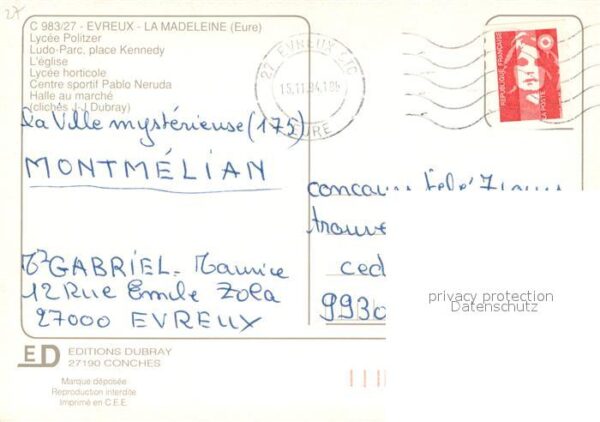 27
C 983/27 - EVREUX - LA MADELEINE (Eure)
Lycée Politzer
Ludo-Parc, place Kennedy
L'église
Lycée horticole
Centre sportif Pablo Neruda
Halle au marché
(clichés J-J Dubray)
27 EVREUX CTC
15.11.94
EURE
REPUBLIQUE FRANÇAISE
LA POSTE
la Ville mystérieuse (175)
MONTMÉLIAN
concours Télé 7 jours
trouve
ced
9930
Mr GABRIEL. Maurice
12 Rue Emile Zola
27000 EVREUX
privacy protection
Datenschutz
ED EDITIONS DUBRAY
27190 CONCHES
Marque déposée
Reproduction interdite
Imprimé en C.E.E.